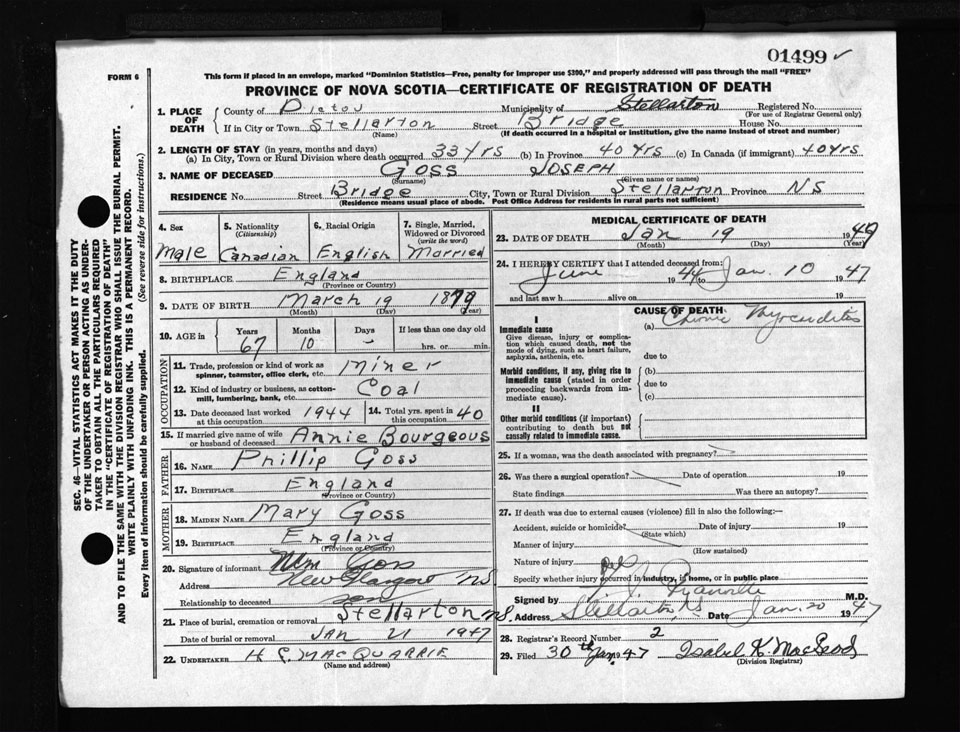 01499 ✓
FORM 6
This form if placed in an envelope, marked "Dominion Statistics—Free, penalty for improper use $300," and properly addressed will pass through the mail "FREE"
PROVINCE OF NOVA SCOTIA—CERTIFICATE OF REGISTRATION OF DEATH
SEC. 46—VITAL STATISTICS ACT MAKES IT THE DUTY
OF THE UNDERTAKER OR PERSON ACTING AS UNDER-
TAKER TO OBTAIN ALL THE PARTICULARS REQUIRED
IN THE "CERTIFICATE OF REGISTRATION OF DEATH"
AND TO FILE THE SAME WITH THE DIVISION REGISTRAR WHO SHALL ISSUE THE BURIAL PERMIT.
WRITE PLAINLY WITH UNFADING INK. THIS IS A PERMANENT RECORD.
Every item of information should be carefully supplied. (See reverse side for instructions.)
1. PLACE OF DEATH County of Pictou Municipality of Stellarton Registered No.
(For use of Registrar General only)
If in City or Town Stellarton Street Bridge House No.
(Name) (If death occurred in a hospital or institution, give the name instead of street and number)
2. LENGTH OF STAY (in years, months and days)
(a) In City, Town or Rural Division where death occurred 33 yrs (b) In Province 40 yrs (c) In Canada (if immigrant) 40 yrs
3. NAME OF DECEASED GOSS JOSEPH
(Surname) (Given name or names)
RESIDENCE No. Street Bridge City, Town or Rural Division Stellarton Province NS
(Residence means usual place of abode. Post Office Address for residents in rural parts not sufficient)
4. Sex 5. Nationality (Citizenship) 6. Racial Origin 7. Single, Married, Widowed or Divorced (write the word)
Male Canadian English Married
8. BIRTHPLACE England
(Province or Country)
9. DATE OF BIRTH March 19 1879
(Month) (Day) (Year)
10. AGE in Years Months Days If less than one day old
67 10 - hrs. or min.
OCCUPATION
11. Trade, profession or kind of work as spinner, teamster, office clerk, etc. Miner
12. Kind of industry or business, as cotton-mill, lumbering, bank, etc. Coal
13. Date deceased last worked at this occupation 1944 14. Total yrs. spent in this occupation 40
15. If married give name of wife or husband of deceased Annie Bourgeous
FATHER
16. NAME Phillip Goss
17. BIRTHPLACE England
(Province or Country)
MOTHER
18. MAIDEN NAME Mary Goss
19. BIRTHPLACE England
(Province or Country)
20. Signature of informant Wm Goss
Address New Glasgow NS
Relationship to deceased son
21. Place of burial, cremation or removal Stellarton N.S.
Date of burial or removal JAN 21 1947
22. UNDERTAKER H S MACQUARRIE
(Name and address)
MEDICAL CERTIFICATE OF DEATH
23. DATE OF DEATH Jan 19 1947
(Month) (Day) (Year)
24. I HEREBY CERTIFY that I attended deceased from:
June 1944 to Jan. 10 1947
and last saw h alive on 19
CAUSE OF DEATH
I
Immediate cause (a) Chronic Myocarditis
Give disease, injury or complica-
tion which caused death, not the
mode of dying, such as heart failure,
asphyxia, asthenia, etc. due to
Morbid conditions, if any, giving rise to (b)
immediate cause (stated in order due to
proceeding backwards from im-
mediate cause). (c)
II
Other morbid conditions (if important)
contributing to death but not
causally related to immediate cause.
25. If a woman, was the death associated with pregnancy?
26. Was there a surgical operation? Date of operation 19
State findings Was there an autopsy?
27. If death was due to external causes (violence) fill in also the following:—
Accident, suicide or homicide? Date of injury 19
(State which)
Manner of injury
(How sustained)
Nature of injury
Specify whether injury occurred in industry, in home, or in public place
Signed by M.D.
Address Stellarton, NS Date Jan. 20 1947
28. Registrar's Record Number 2
29. Filed 30th Jan. 1947 Isabel K. MacLeod
(Division Registrar)